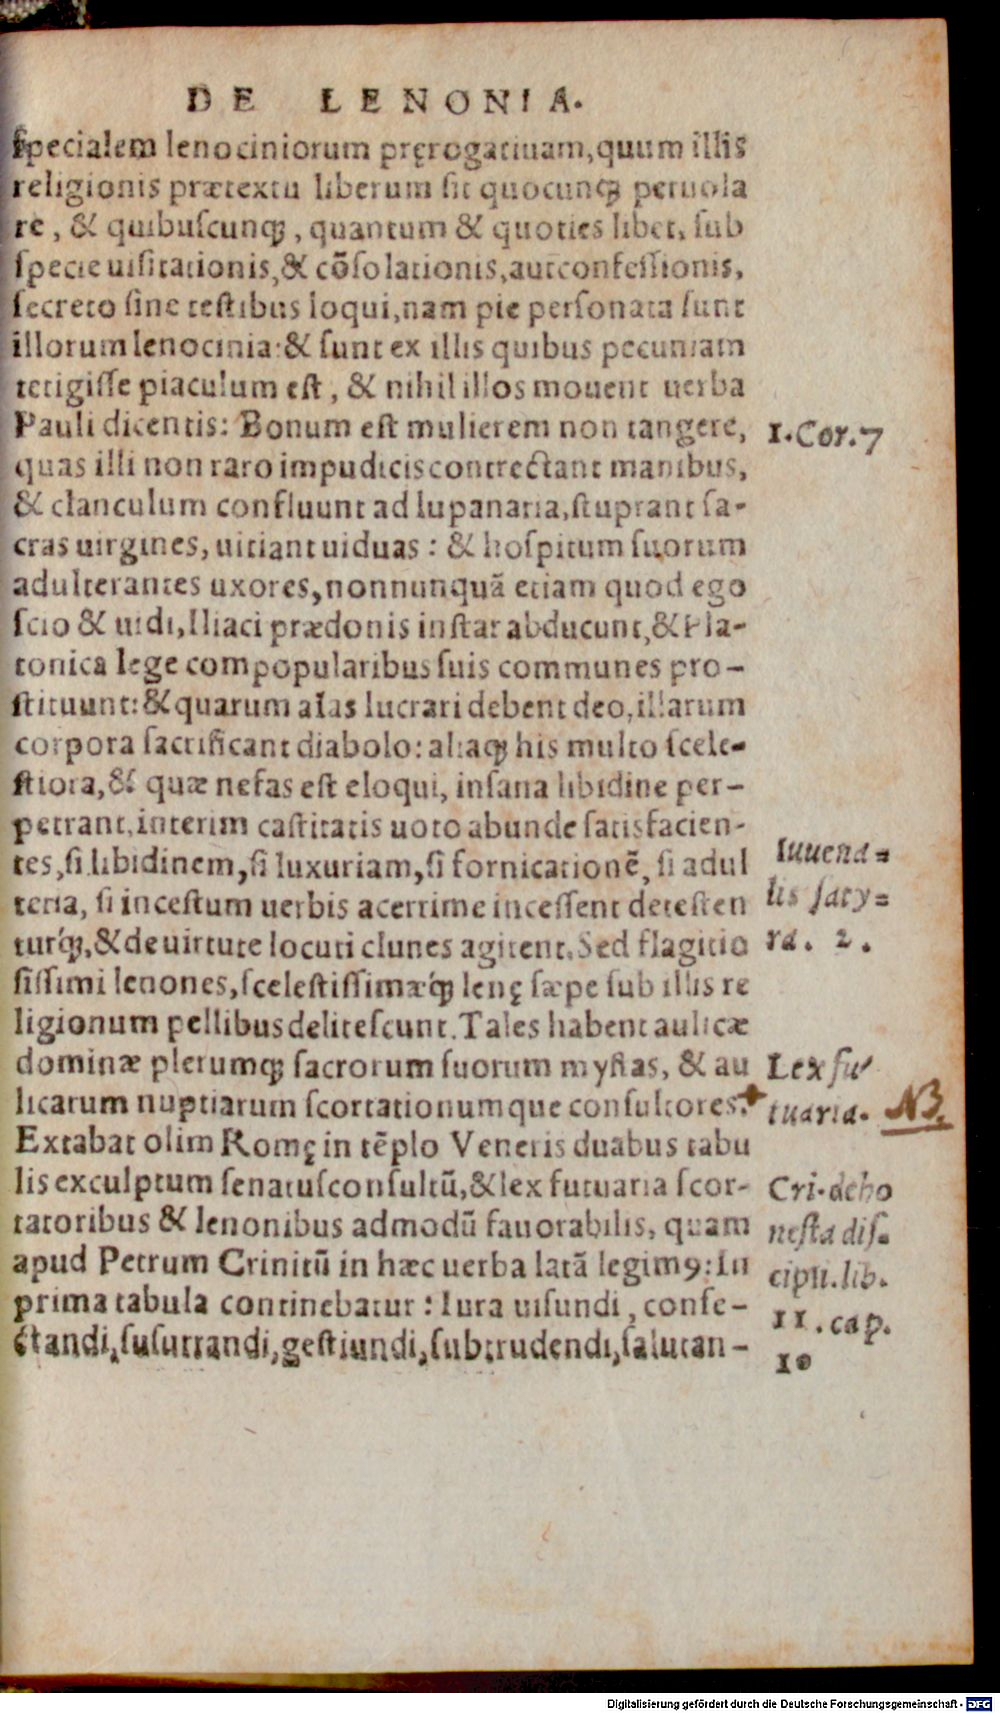 DE LENONIA.
specialem lenociniorum pręrogatiuam, quum illis
religionis prætextu liberum sit quocunqꝫ peruola
re, & quibuscunqꝫ, quantum & quoties libet, sub
specie uisitationis, & cõsolationis, aut confessionis,
secreto sine testibus loqui, nam pie personata sunt
illorum lenocinia: & sunt ex illis quibus pecuniam
tetigisse piaculum est, & nihil illos mouent uerba
Pauli dicentis: Bonum est mulierem non tangere,
1. Cor. 7
quas illi non raro impudicis contrectant manibus,
& clanculum confluunt ad lupanaria, stuprant sa-
cras uirgines, uitiant uiduas: & hospitum suorum
adulterantes uxores, nonnunquã etiam quod ego
scio & uidi, Iliaci prædonis instar abducunt, & Pla-
tonica lege compopularibus suis communes pro-
stituunt: & quarum alas lucrari debent deo, illarum
corpora sacrificant diabolo: aliaqꝫ his multo scele-
stiora, & quæ nefas est eloqui, insana libidine per-
petrant, interim castitatis uoto abunde satisfacien-
tes, si libidinem, si luxuriam, si fornicationẽ, si adul
teria, si incestum uerbis acerrime incessent detesten
turqꝫ́, & de uirtute locuti clunes agitent. Sed flagitio
Iuuena=
lis saty=
ra. 2.
sissimi lenones, scelestissimæqꝫ́ lenę sæpe sub illis re
ligionum pellibus delitescunt. Tales habent aulicæ
dominæ plerumqꝫ sacrorum suorum mystas, & au
licarum nuptiarum scortationumque consultores.
Lex fu
tuaria. NB.
Extabat olim Romę in tẽplo Veneris duabus tabu
lis exculptum senatusconsultũ, & lex futuaria scor-
tatoribus & lenonibus admodũ fauorabilis, quam
apud Petrum Crinitũ in hæc uerba latã legimꝰ: In
prima tabula continebatur: Iura uisundi, conse-
ctandi, susurrandi, gestiundi, subtrudendi, salutan-
Cri. de ho
nesta dis.
cipli. lib.
11. cap.
10
Digitalisierung gefördert durch die Deutsche Forschungsgemeinschaft - DFG